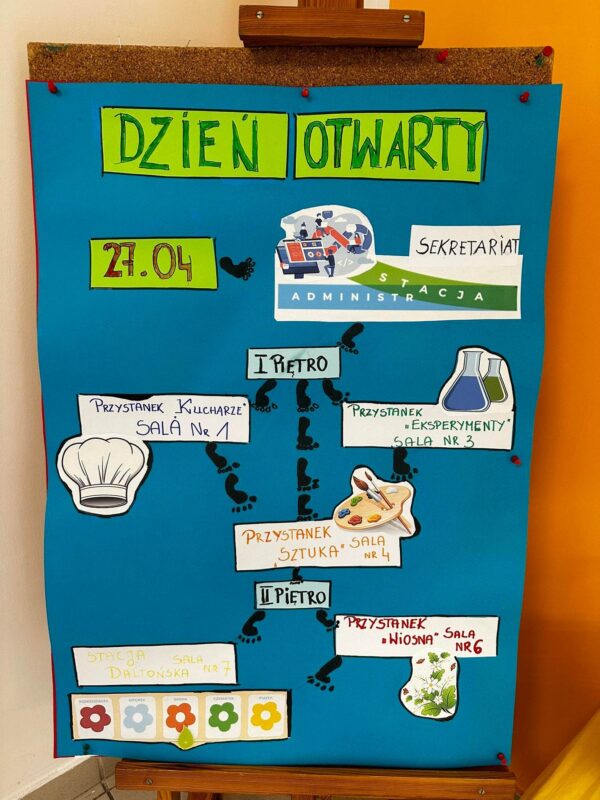 DZIEŃ OTWARTY
27.04
SEKRETARIAT
STACJA
ADMINISTR
I PIĘTRO
PRZYSTANEK „KUCHARZE"
SALA NR 1
PRZYSTANEK
„EKSPERYMENTY"
SALA NR 3
PRZYSTANEK
„SZTUKA" SALA
NR 4
II PIĘTRO
PRZYSTANEK
„WIOSNA" SALA
NR 6
STACJA
DALTOŃSKA SALA
NR 7
PONIEDZIAŁEK WTOREK ŚRODA CZWARTEK PIĄTEK